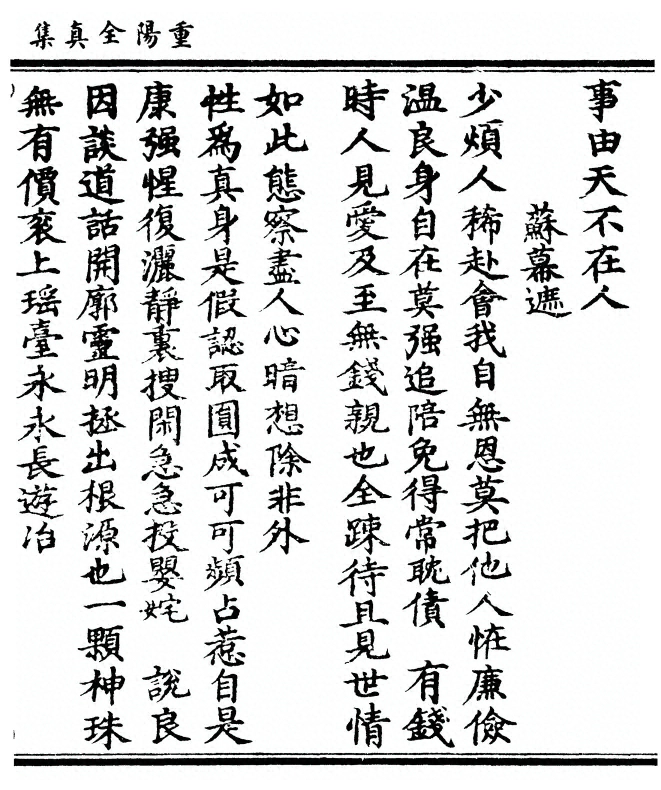 重陽全真集
事由天不在人
蘇幕遮
少煩人稀赴會我自無恩莫把他人恠廉儉
温良身自在莫强追陪免得常耽債　有錢
時人見愛及至無錢親也全踈待且見世情
如此態察盡人心暗想除非外
性爲真身是假認取圓成可可頻占惹自是
康强惺復灑靜裏搜閑急急投嬰姹　說良
因談道話開廓靈明拯出根源也一顆神珠
無有價衮上瑶臺永永長遊冶